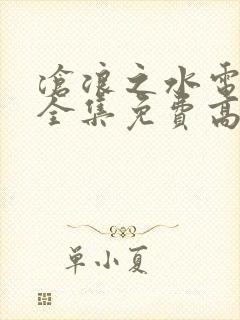 滄浪之水電
全集免費高
单小夏